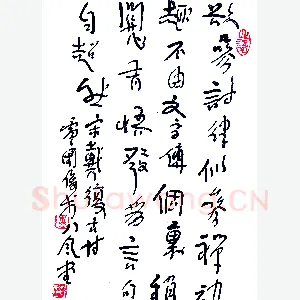 欲參討律似參禪妙
趣不由文字傳個裏稍
關有悟發為言句
自超然宋戴復古詩
Shufawang.CN